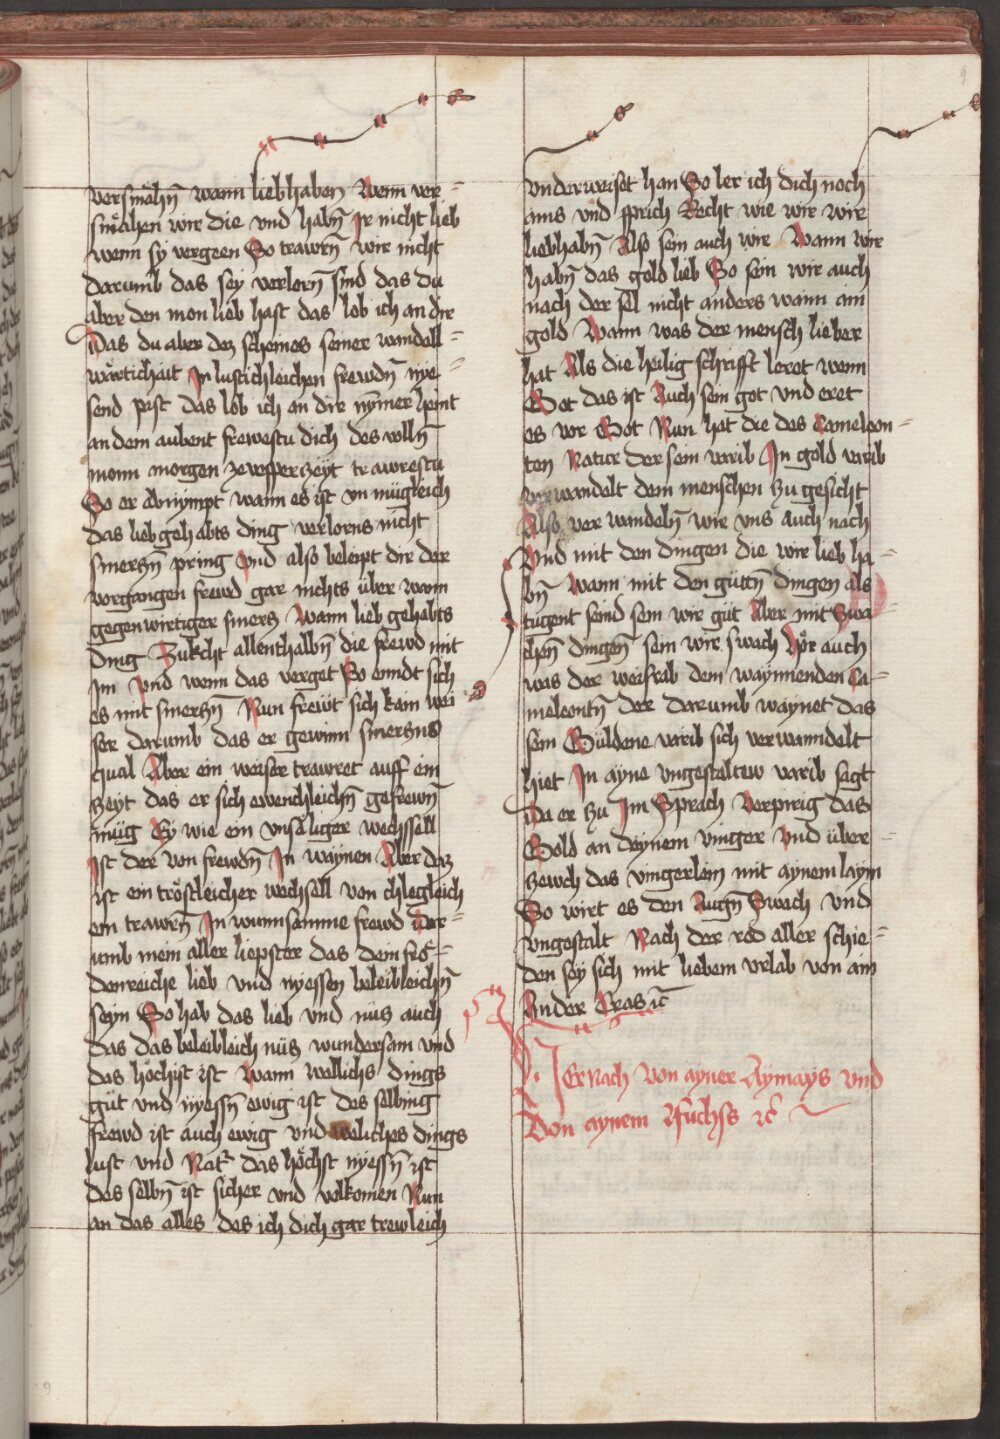 versmähn̄ wann liebhaben Wenn ver=
smächen wir die vnd habn̄ Ir nicht lieb
wenn sy vergeen So trawrn̄ wir nicht
darumb das sey verlorn̄ sind das du
aber den mon lieb hast das lob ich an dir
Das du aber dez scheines seiner wandell=
wärtichait In lustichleichen frewdn̄ nye=
send pist das lob ich an dir nymer heint
an dem aubent frewestu dich des volln̄
monn morgen ze vesper zeyt trawrestu
So er abnympt wann es ist vn mügleich
das lieb gehabts ding verlorns nicht
smerczn̄ pring Vnd also beleipt dir der
vorgangen frewd gar nichts über wann
gegenwirtiger smercz Wann lieb gehabts
ding Zukcht allenthalbn̄ die frewd mit
Im Vnd wenn das verget So enndt sich
es mit smerczn̄ Nun frewt sich kain wei
ser darumb das er gewinn smerczns
qual Aber ein weiser trawret auff ein
zeyt das er sich ewenchleichn̄ gefrewn̄
müg Ey wie ein vnsäliger wechssell
Ist der von frewdn̄ In waynen Aber daz
ist ein tröstleicher wechsell von chlegleich
em trawrn̄ In wunnsamme frewd Dar=
umb mein aller liepster das dein frö=
denreiche lieb vnd nyessen beleibleichn̄
seyn So hab das lieb vnd nüs auch
das das beleibleich nüz wundersam vnd
das höchst ist Wann wellichs dings
güt vnd nyessn̄ ewig ist des selbing
frewd ist auch ewig vnd weliches dings
lust vnd Nat̄ das höchst nyessn̄ ist
des selbn̄ ist sicher vnd volkomen Nun
an das alles des ich dich gar trewleich
vnderweiset han So ler ich dich noch
ains vnd sprich Recht wie wir wir
liebhabn̄ Also sein auch wir Wann wir
habn̄ das gold lieb So sein wir auch
nach der sel nicht anders wann ain
gold Wann was der mensch lieber
hat Als die heilig schrifft leret wenn
Got das ist Auch sein got vnd eret
es vor Got Nun hat die des Cameleon=
ten Natur der sein varib In gold varib
verwandelt dem menschen zu gesicht
Also ver wandeln̄ wir vns auch nach
Vnd mit den dingen die wir lieb ha=
bn̄ Wann mit den güttn̄ dingen als
tugent seind sein wir güt Aber mit Swa=
chen̄ dingen̄ sein wir swach Hör auch
was der weis sprab dem waynnenden Ca=
meleontn̄ der darumb waynet das
sein Guldene varib sich verwanndelt
hiet In ayne vngestaltew varib sagt
Da er zu Im Sprach Verpirig das
Gold an deynem vinger Vnd über=
zewch das vingerlein mit aynem laym
So wirt es den Augn̄ Swach vnd
vngestalt Nach der red aller schie=
den sey sich mit liebem vrlab von ain
Ander Cras ꝛc̄
HIernach von ayner Aÿmays vnd
Von aynem Fuchss ꝛc̄
9